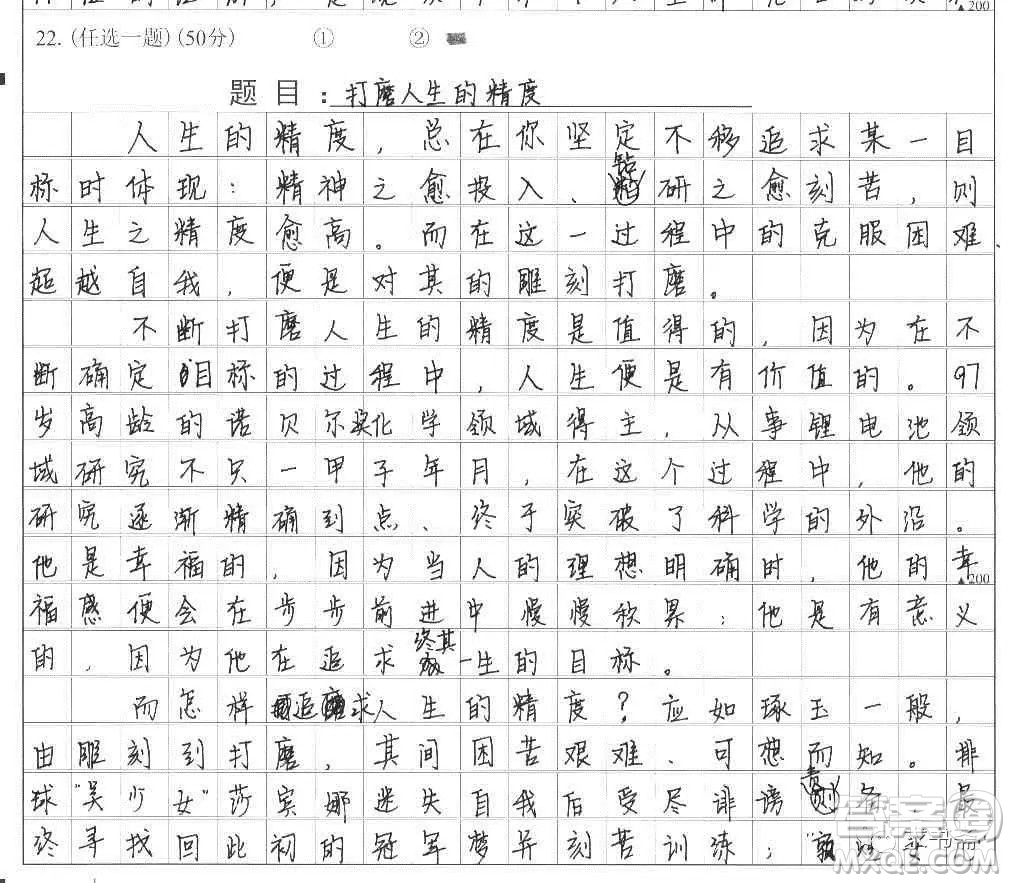 ▲200
22. (任选一题) (50分) ① ②
题目：打磨人生的精度
人生的精度，总在你坚定不移追求某一目
标时体现：精神之愈投入、钻研之愈刻苦，则
人生之精度愈高。而在这一过程中的克服困难、
超越自我，便是对其的雕刻打磨。
不断打磨人生的精度是值得的，因为在不
断确定目标的过程中，人生便是有价值的。97
岁高龄的诺贝尔奖化学领域得主，从事锂电池领
域研究不只一甲子年月，在这个过程中，他的
研究逐渐精确到点、终于突破了科学的外沿。
他是幸福的，因为当人的理想明确时，他的幸
▲200
福感便会在步步前进中慢慢积累；他是有意义
的，因为他在追求终其一生的目标。
而怎样追求人生的精度？应如琢玉一般，
由雕刻到打磨，其间困苦艰难、可想而知。排
球"吴少女"莎宾娜迷失自我后受尽诽谤责备，最
终寻找回此初的冠军梦并刻苦训练；"敦